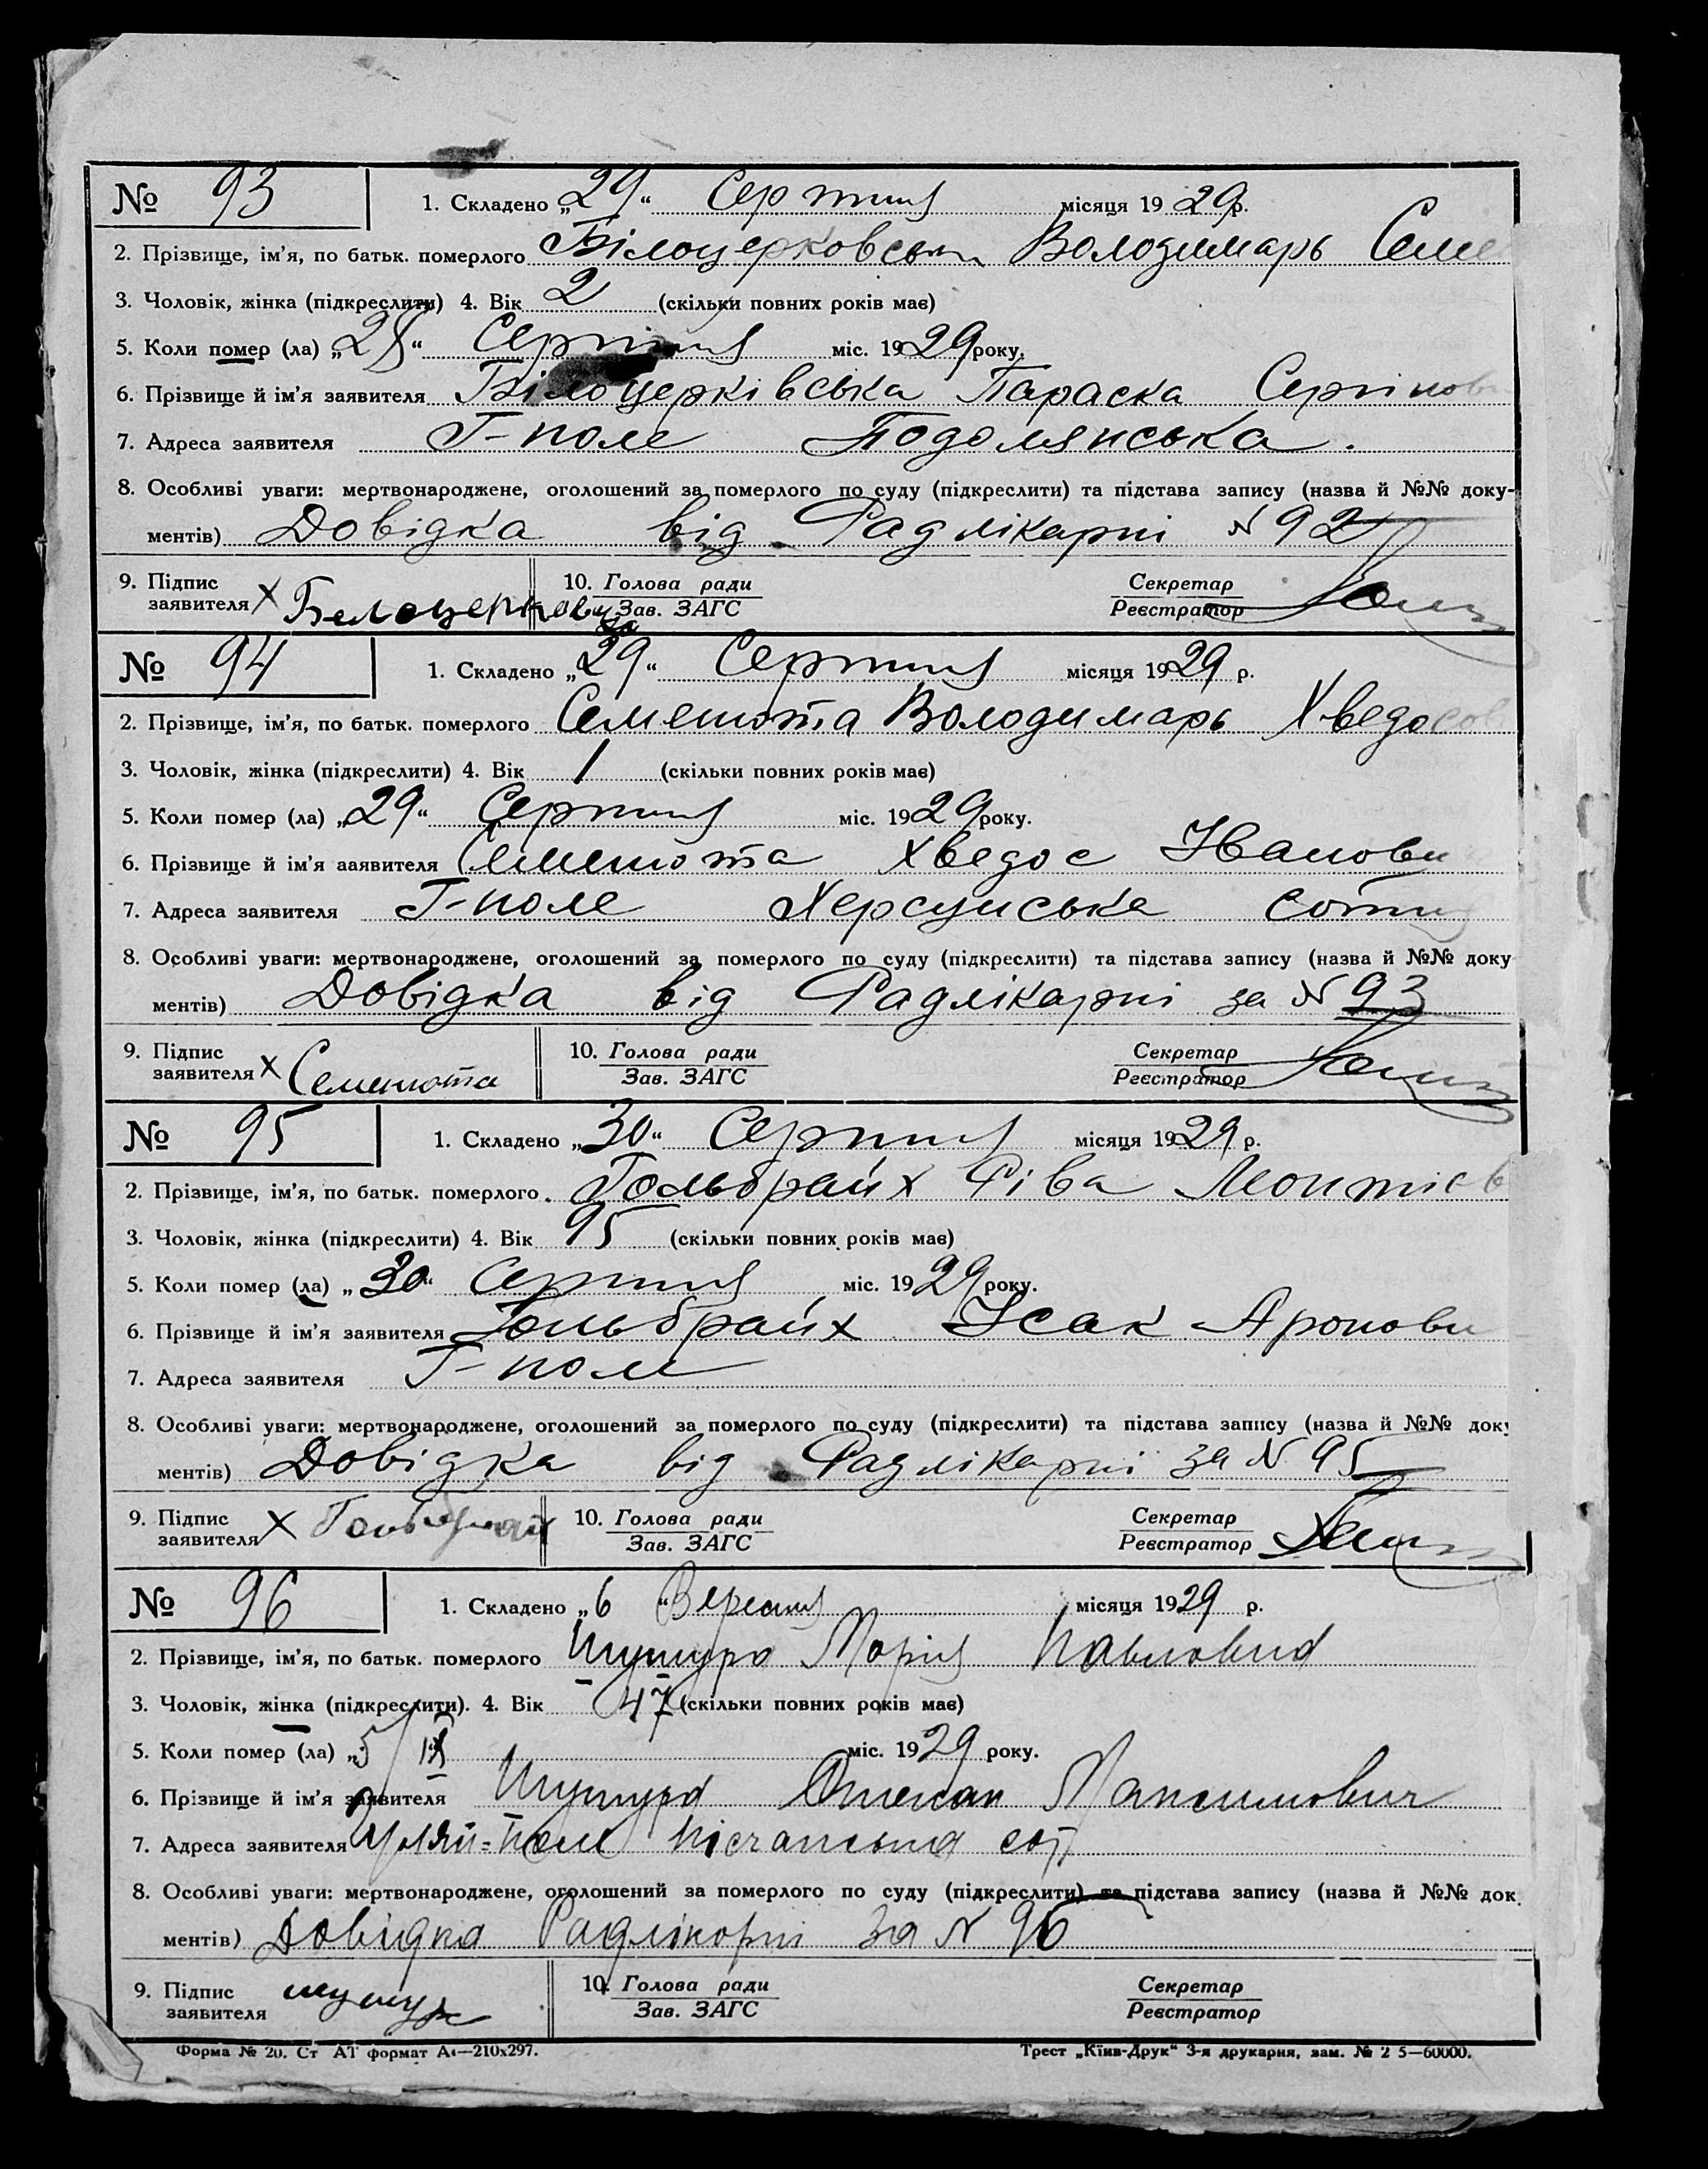 № 93 1. Складено „29“ Серпня місяця 1929 р.
2. Прізвище, ім’я, по батьк. померлого Білоцерковськи Володимарь Семе
3. Чоловік, жінка (підкреслити) 4. Вік 2 (скільки повних років має)
5. Коли помер (ла) „28“ Серпня міс. 1929 року.
6. Прізвище й ім’я заявителя Білоцерківська Параска Сергіновн
7. Адреса заявителя Г-поле Подолянська.
8. Особливі уваги: мертвонароджене, оголошений за померлого по суду (підкреслити) та підстава запису (назва й №№ доку-
ментів) Довідка від Радлікарні N 92
9. Підпис заявителя х Белоцерковська 10. Голова ради Зав. ЗАГС Секретар Реєстратор
№ 94 1. Складено „29“ Серпня місяця 1929 р.
2. Прізвище, ім’я, по батьк. померлого Семенюта Володимарь Хведосов
3. Чоловік, жінка (підкреслити) 4. Вік 1 (скільки повних років має)
5. Коли помер (ла) „29“ Серпня міс. 1929 року.
6. Прізвище й ім’я ааявителя Семенюта Хведос Іванови
7. Адреса заявителя Г-поле Херсунська сотня
8. Особливі уваги: мертвонароджене, оголошений за померлого по суду (підкреслити) та підстава запису (назва й №№ доку
ментів) Довідка від Радлікарні за N 93
9. Підпис заявителя х Семенюта 10. Голова ради Зав. ЗАГС Секретар Реєстратор
№ 95 1. Складено „30“ Серпня місяця 1929 р.
2. Прізвище, ім’я, по батьк. померлого Гольбрайх Ріва Леонтієв
3. Чоловік, жінка (підкреслити) 4. Вік 95 (скільки повних років має)
5. Коли помер (ла) „30“ Серпня міс. 1929 року.
6. Прізвище й ім’я заявителя Гольбрайх Ісак Аронови
7. Адреса заявителя Г-поле
8. Особливі уваги: мертвонароджене, оголошений за померлого по суду (підкреслити) та підстава запису (назва й №№ доку
ментів) Довідка від Радлікарні за N 95
9. Підпис заявителя х 10. Голова ради Зав. ЗАГС Секретар Реєстратор
№ 96 1. Складено „6“ Вересня місяця 1929 р.
2. Прізвище, ім’я, по батьк. померлого Шушура Марія Павловна
3. Чоловік, жінка (підкреслити). 4. Вік 47 (скільки повних років має)
5. Коли помер (ла) „5/IX міс. 1929 року.
6. Прізвище й ім’я заявителя Шушура Степан Максимович
7. Адреса заявителя Гуляй-Поле Пісчанська сот
8. Особливі уваги: мертвонароджене, оголошений за померлого по суду (підкреслити) та підстава запису (назва й №№ док
ментів) Довідка Радлікарні За N 96
9. Підпис заявителя шушура 10. Голова ради Зав. ЗАГС Секретар Реєстратор
Форма № 20. Ст АТ формат А4—210x297. Трест „Київ-Друк“ 3-я друкарня, зам. № 2 5—60000.